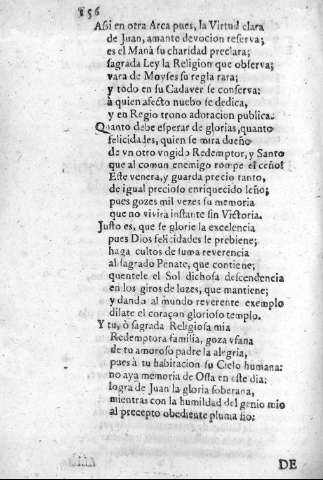 156
Assi en otra Arca pues, la Virtud clara
de Juan, amante devocion reserva;
es el Manà su charidad preclara;
sagrada Ley la Religion que observa;
vara de Moyses su regla rara;
y todo en su Cadaver se conserva:
à quien afecto nuebo se dedica,
y en Regio trono adoracion publica.
Quanto debe esperar de glorias, quanto
felicidades, quien se mira dueño
de vn otro vngido Redemptor, y Santo
que al comun enemigo rompe el ceño!
Este venera, y guarda precio tanto,
de igual precioso enriquecido leño;
pues gozes mil vezes su memoria
que no vivirà instante sin Victoria.
Justo es, que se glorie la excelencia
pues Dios felicidades le prebiene;
haga cultos de suma reverencia
al sagrado Penate, que contiene;
quentele el Sol dichosa descendencia
en los giros de luzes, que mantiene;
y dando al mundo reverente exemplo
dilate el coraçon glorioso templo.
Y tu, ò sagrada Religiosa mia
Redemptora familia, goza vfana
de tu amoroso padre la alegria,
pues à tu habitacion su Cielo humana:
no aya memoria de Ossa en este dia;
logra de Juan la gloria soberana,
mientras con la humildad del genio mio
al precepto obediente pluma fio.
DE